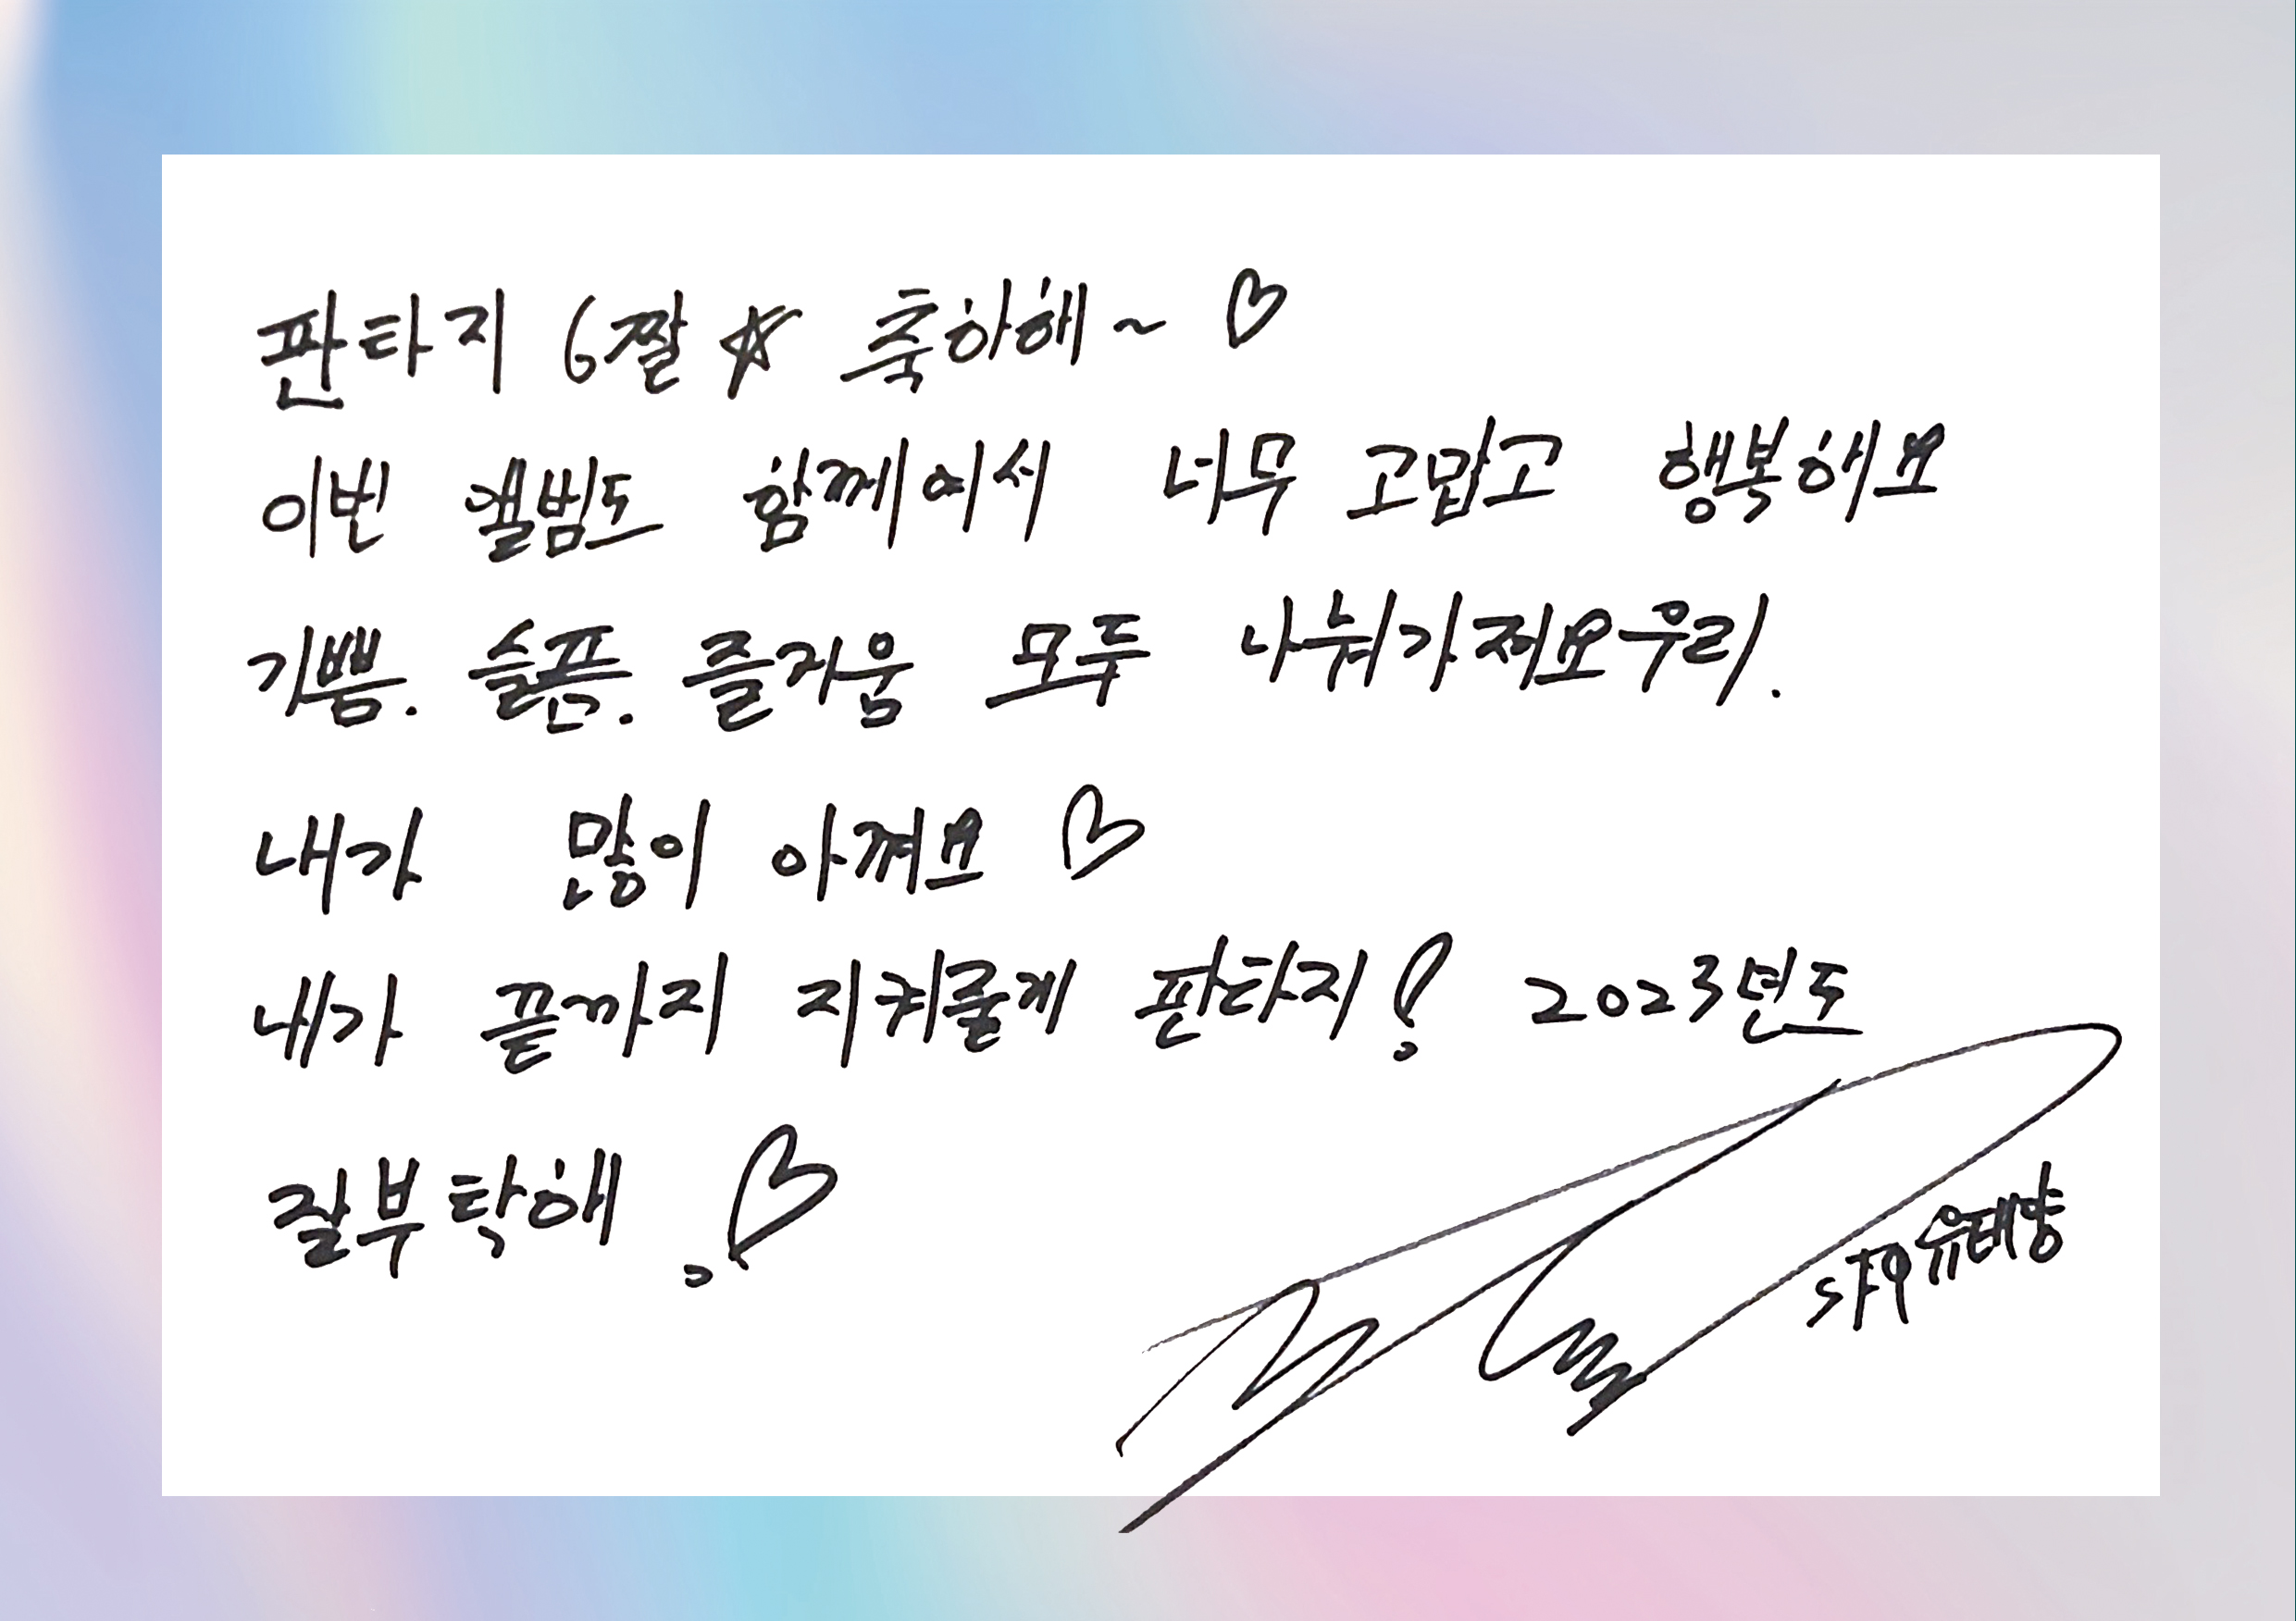 판타지 6짤☆ 축하해~ ♡
이번 앨범도 함께여서 너무 고맙고 행복해요
기쁨. 슬픔. 즐거움 모두 나눠가져요우리.
내가 많이 아껴요 ♡
내가 끝까지 지켜줄게 판타지! 2023년도
잘부탁해 ♡
SF9 유태양